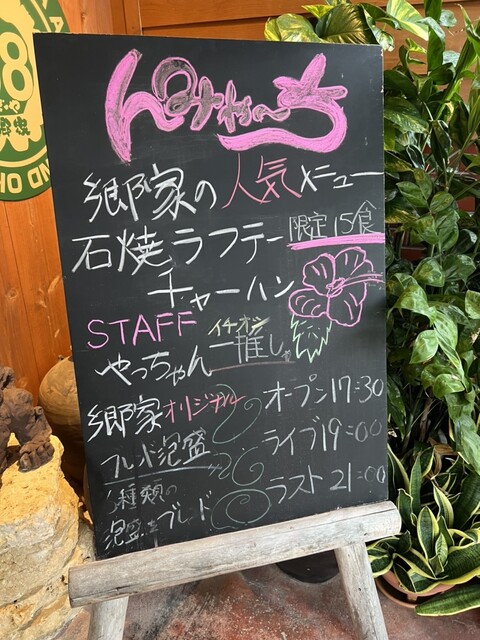 んみゃ〜ち
郷家の人気メニュー
石焼ラフテー 限定15食
チャーハン
STAFF イチオシ
やっちゃん一推し
郷家オリジナル オープン17:30
ブレンド泡盛 ライブ19:00
種類の ラスト21:00
泡盛をブレンド
8
郷家